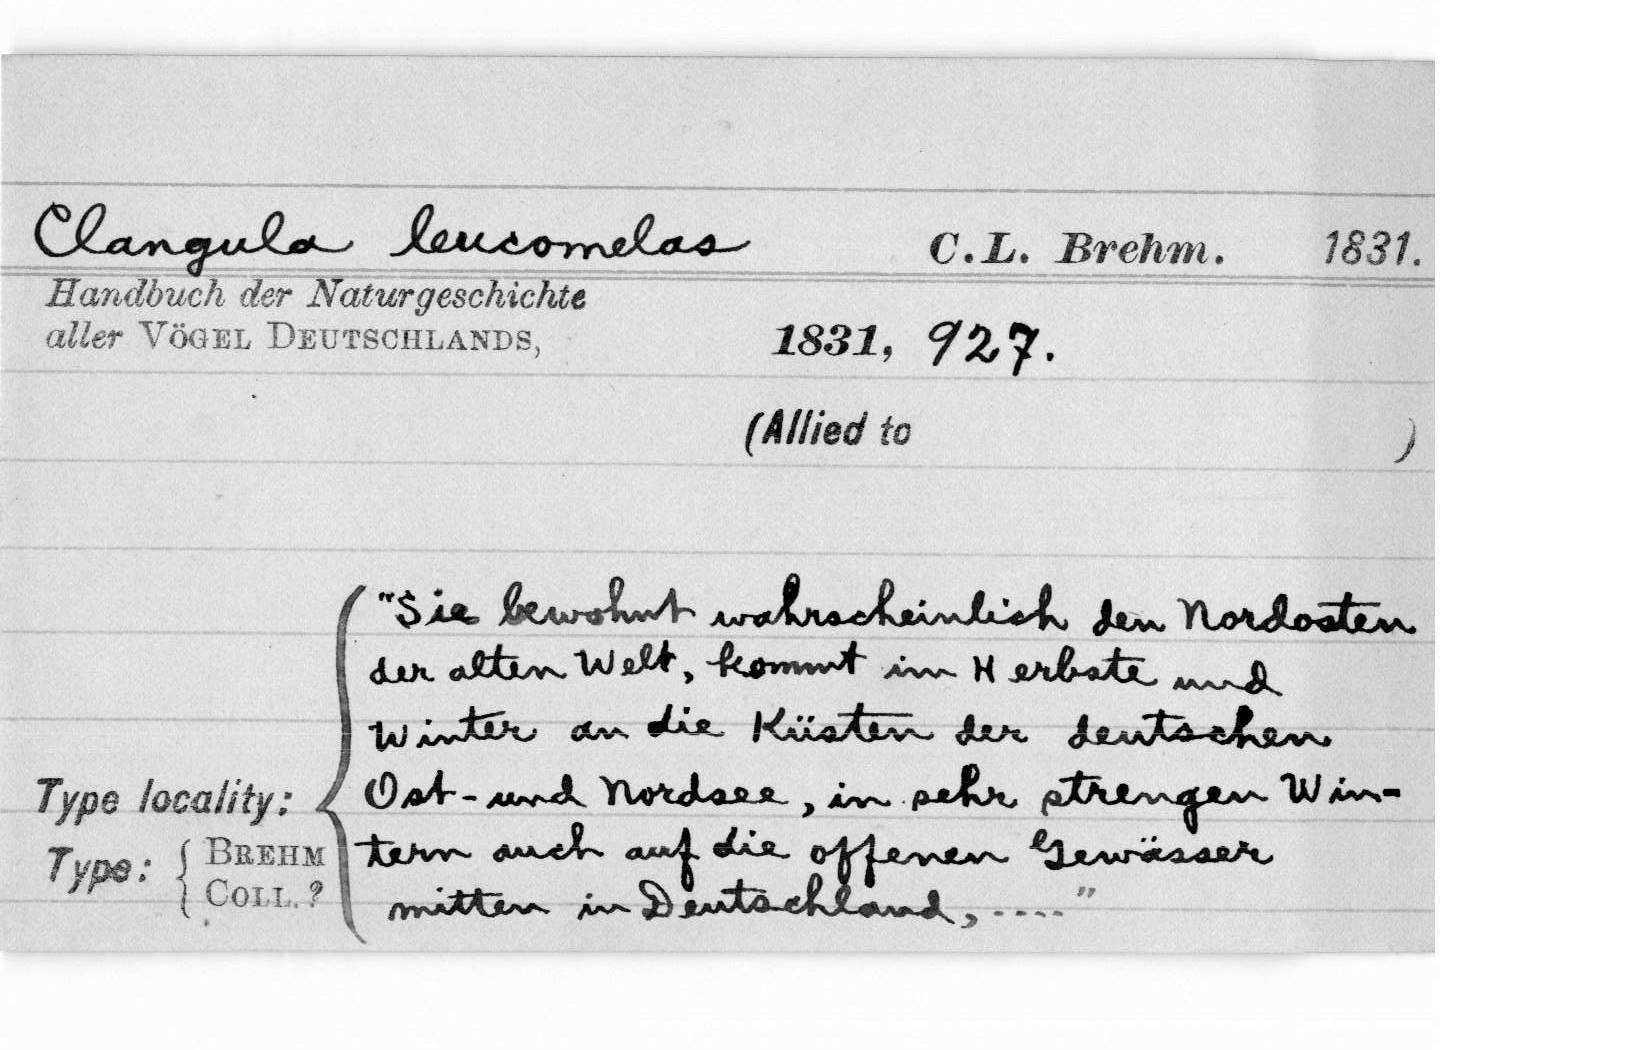 Clangula leucomelas C.L. Brehm. 1831.
Handbuch der Naturgeschichte
aller VÖGEL DEUTSCHLANDS, 1831, 927.
(Allied to )
"Sie bewohnt wahrscheinlich den Nordosten
der alten Welt, kommt im Herbste und
Winter an die Küsten der deutschen
Type locality: Ost- und Nordsee, in sehr strengen Win-
Type: { BREHM COLL. ? tern auch auf die offenen Gewässer
mitten in Deutschland, ...."